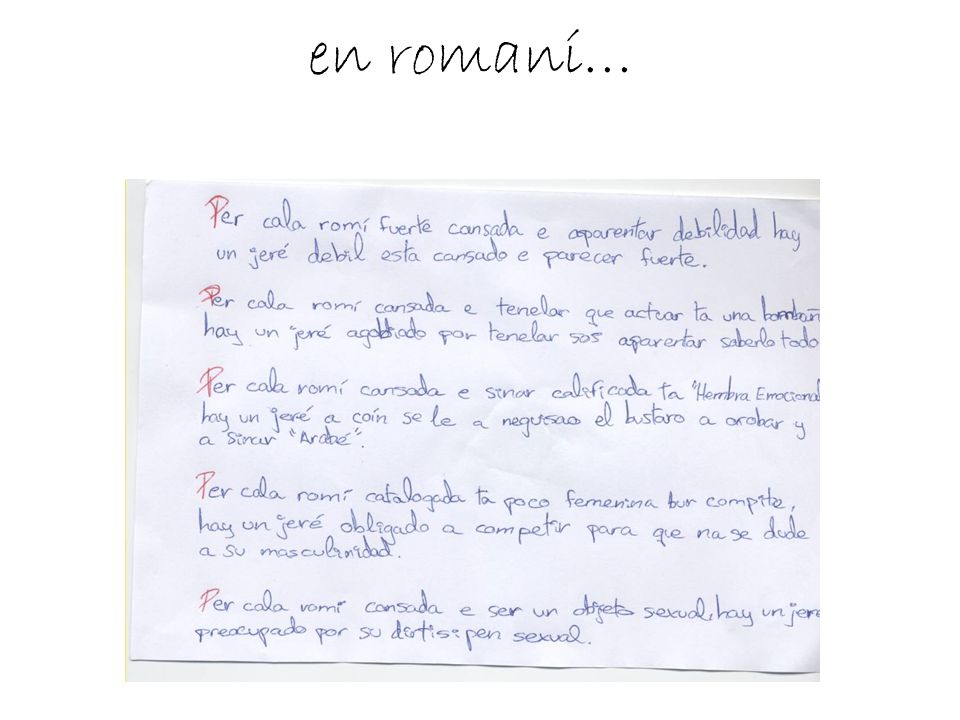 en romaní...
Per cala romí fuerte cansada e aparentar debilidad hay
un jeré debil esta cansado e parecer fuerte.
Per cala romí cansada e tenelar que actuar ta una
hay un jeré agobiado por tenelar sos aparentar saberlo todo
Per cala romí cansada e sinar calificada ta "Hembra Emocional
hay un jeré a coín se le a neguisao el bustaro a orobar y
a sinar
Per cala romí catalogada ta poco femenina bur compite,
hay un jeré obligado a competir para que na se dude
a su masculinidad.
Per cala romí cansada e ser un objeto sexual, hay un jeré
preocupado por su sexual.